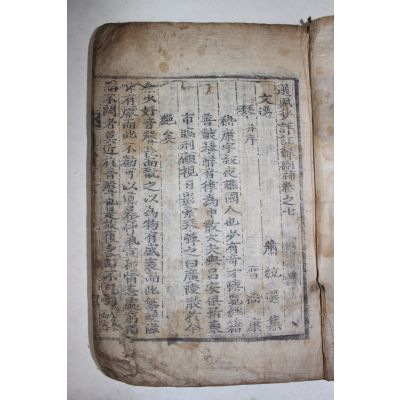 選賦抄評註解刪補卷之七
文選 蕭統選集
琴賦 并序 晉 嵇康
嵇康字叔夜譙國人也少有奇才博覽經籍
善鼓琴解音律為中散大夫與呂安俱斬東
市臨刑顧視日影索琴彈之曰廣陵散於今
絕矣
余少好音聲長而翫之以為物有盛衰而此無變滋
味有厭而此不勌可以導養神氣宣和情志處窮獨
而不悶者莫近於音聲也是故復之而不足則